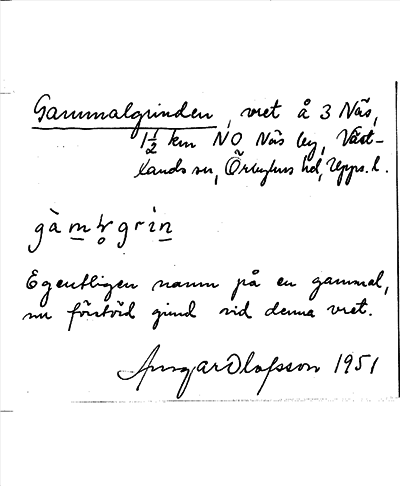 Gammalgrinden, vret å 3 Näs,
1 1/2 km NO Näs by, Väst-
lands sn, Örbyhus hd, Upps. l.
gàmḷ̥grìn
Egentligen namn på en gammal,
nu förstörd grind vid denna vret.
Ingvar Olofsson 1951